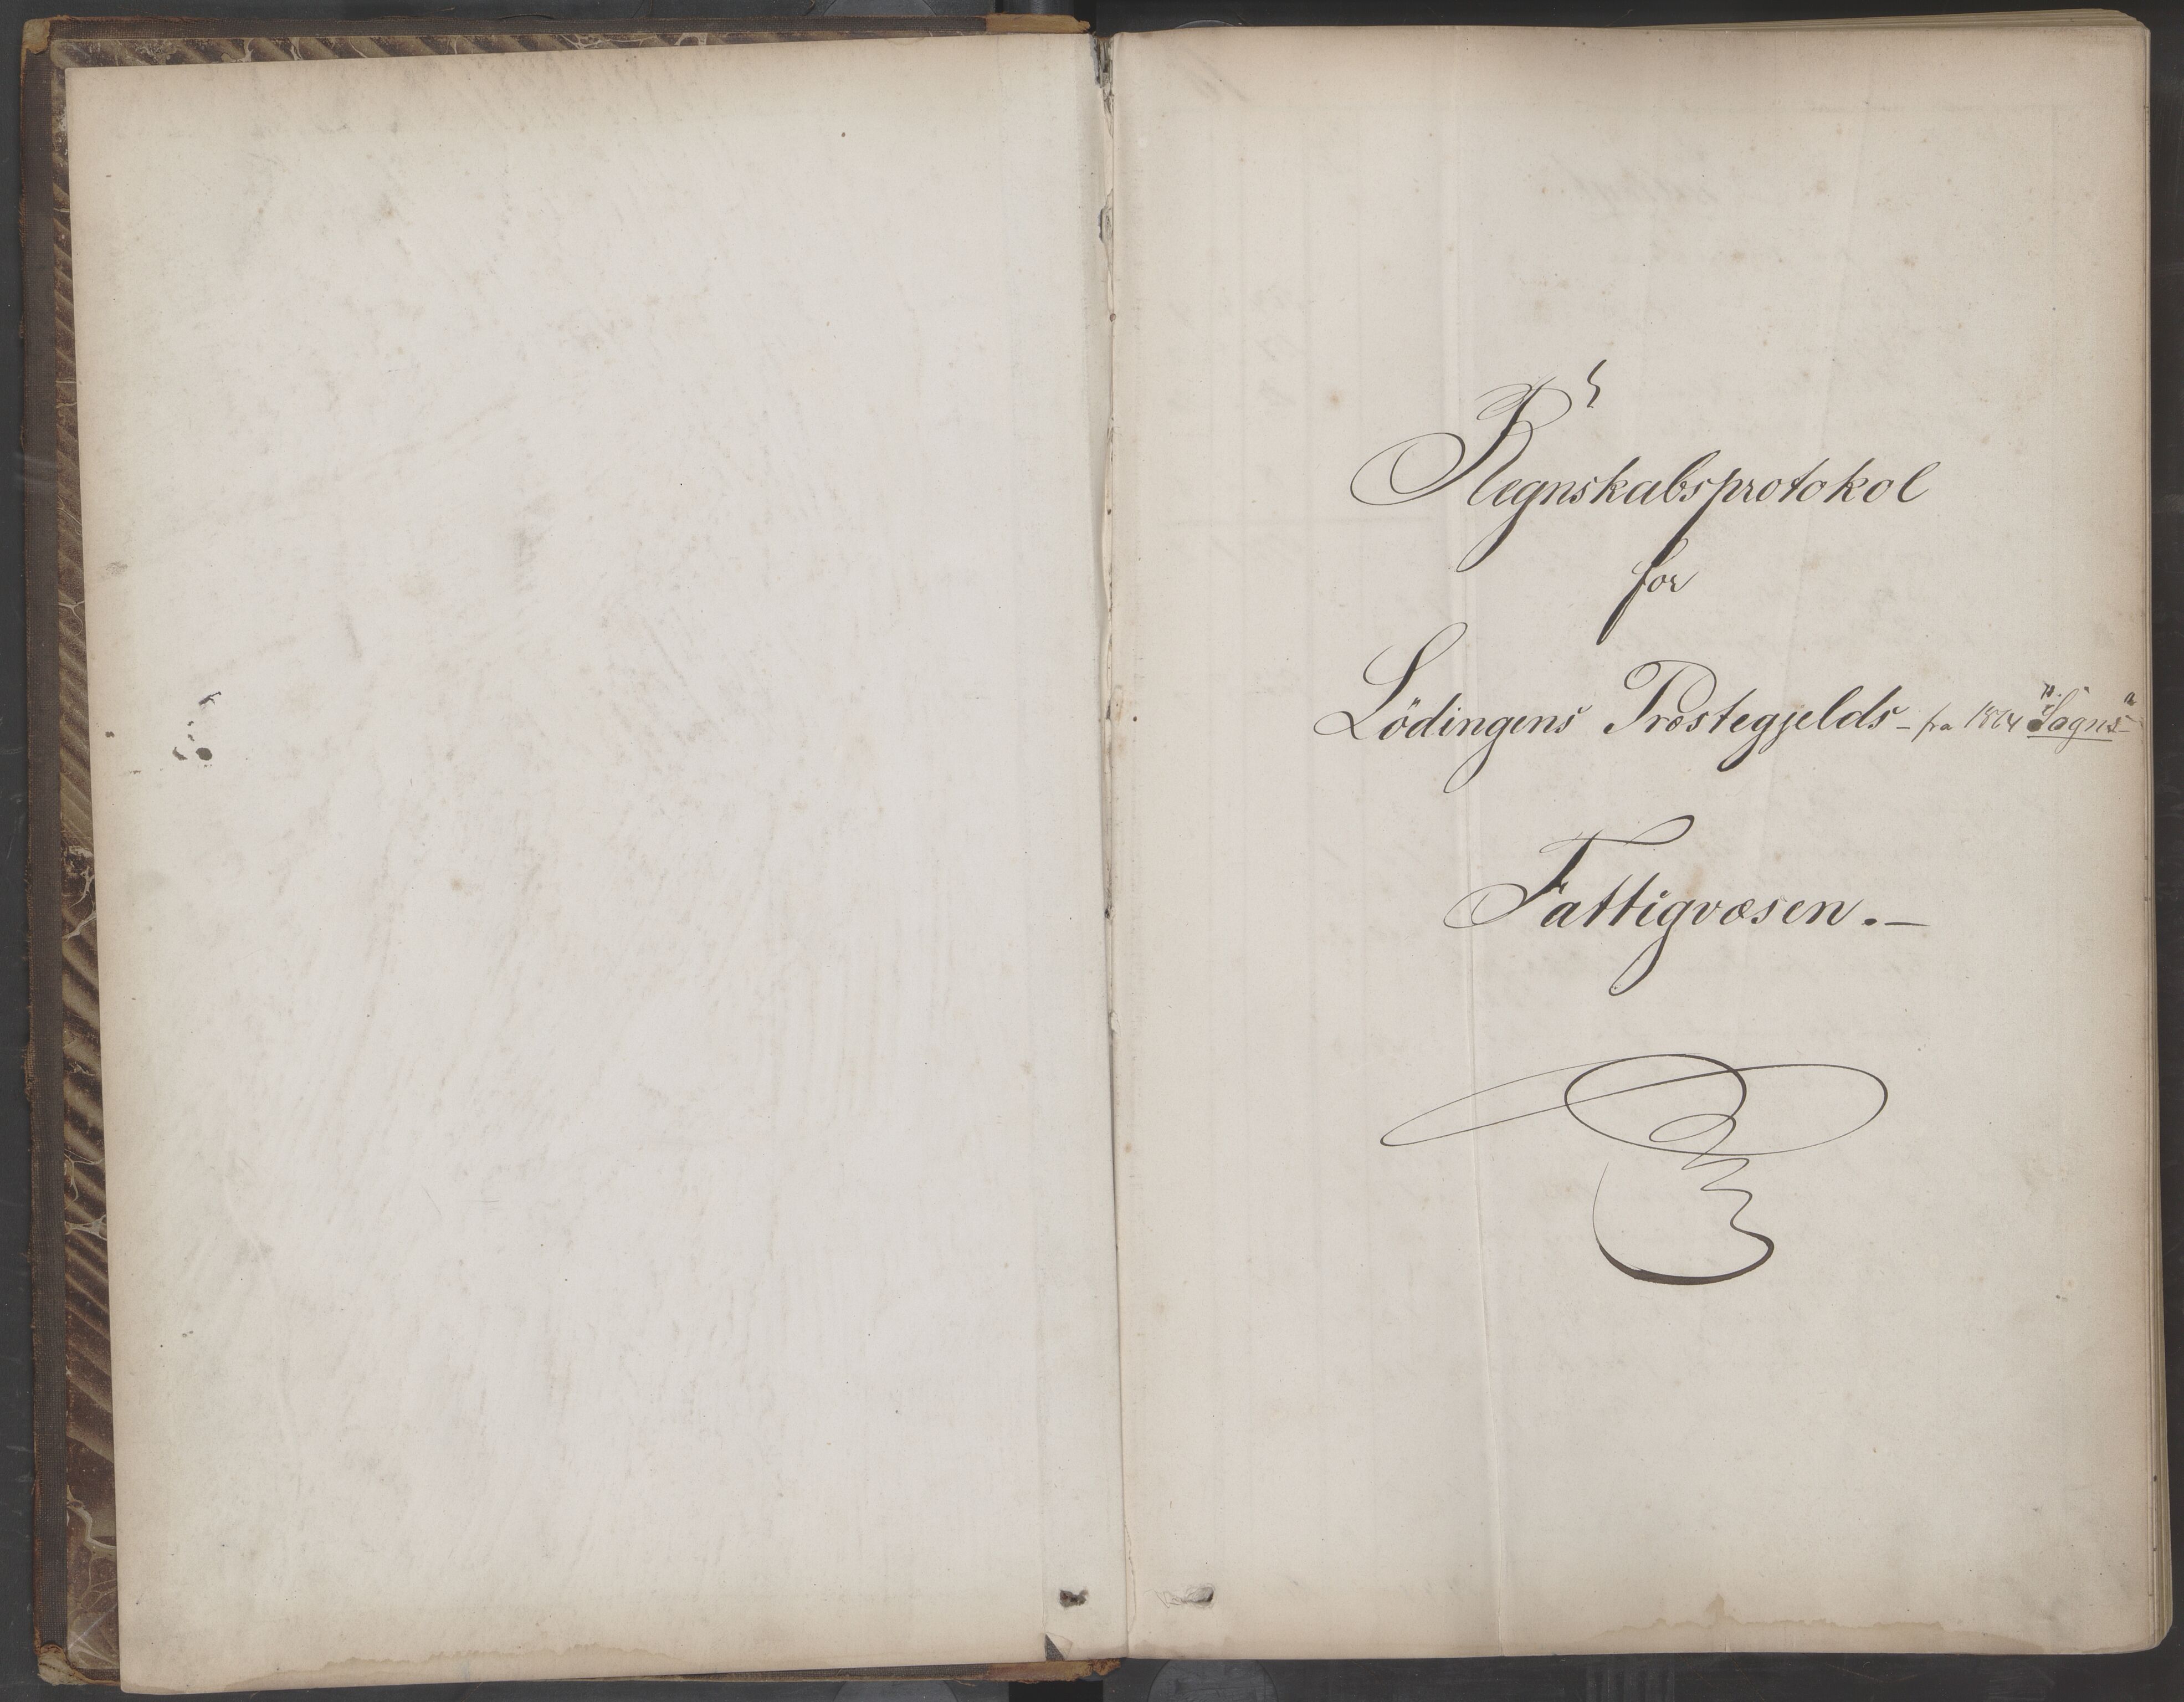 Regnskabsprotokol
for
Lödingens Præstegjelds - fra 1864 "Sogns"
Fattigvæsen. -